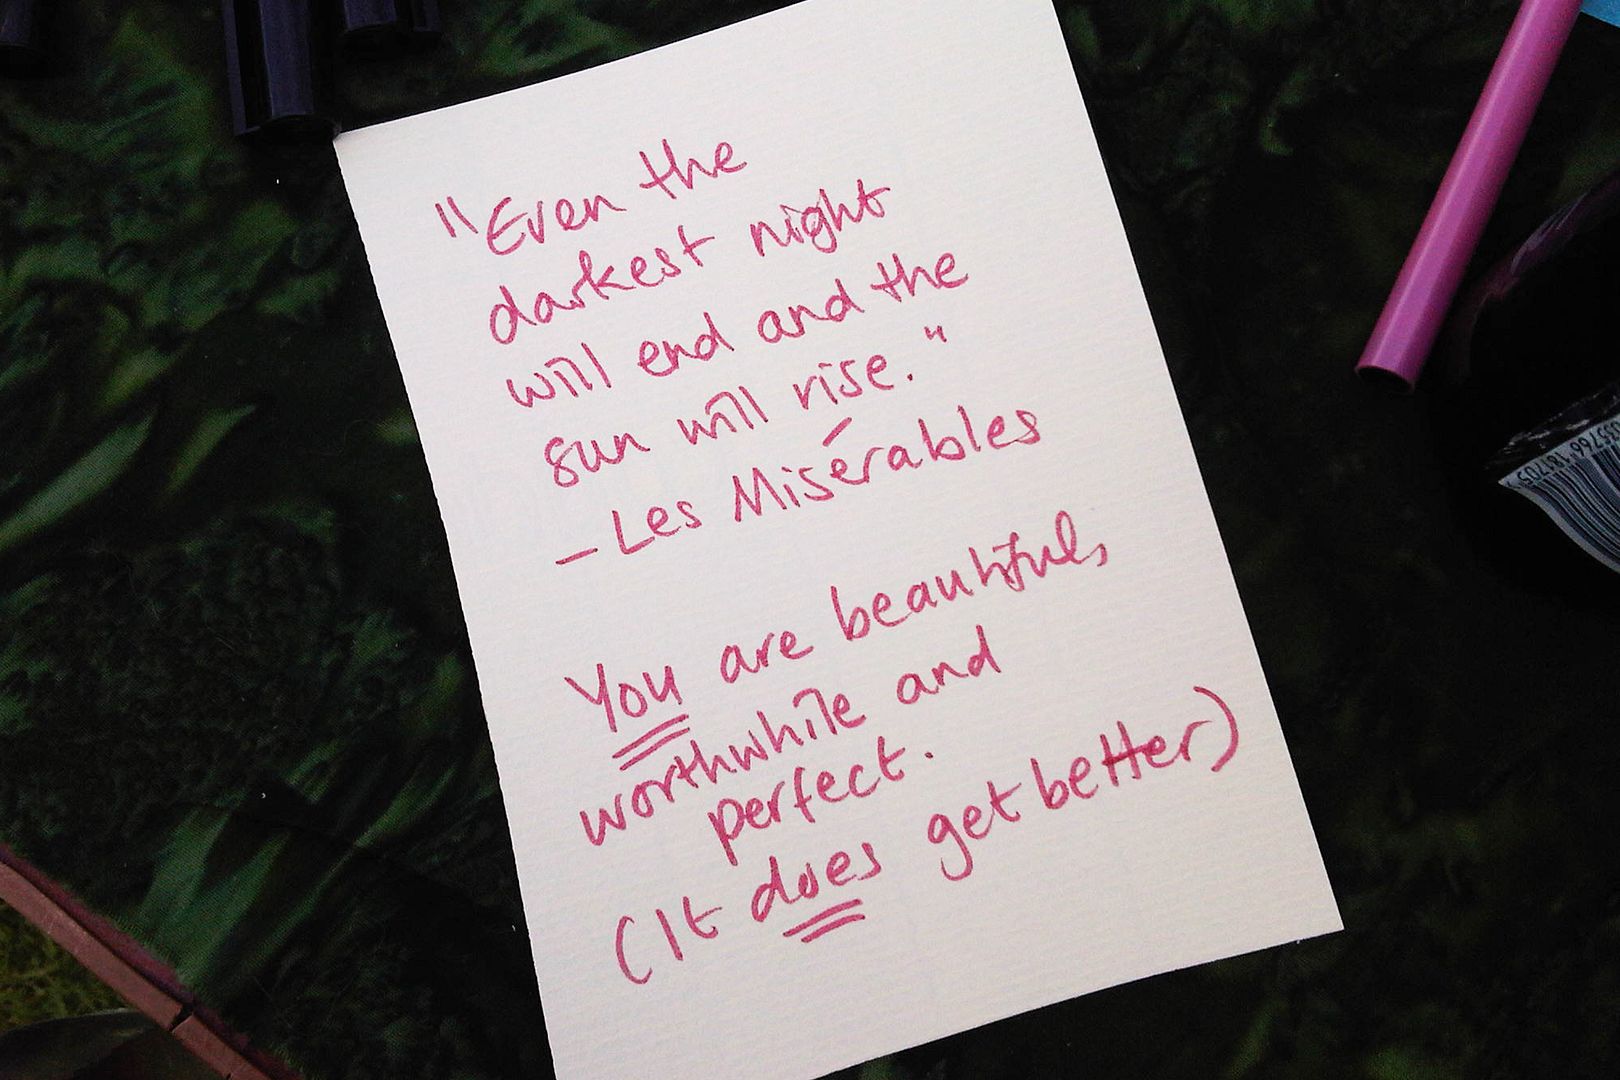 "Even the
darkest night
will end and the
sun will rise."
- Les Misérables
You are beautiful,
worthwhile and
perfect.
(It does get better)